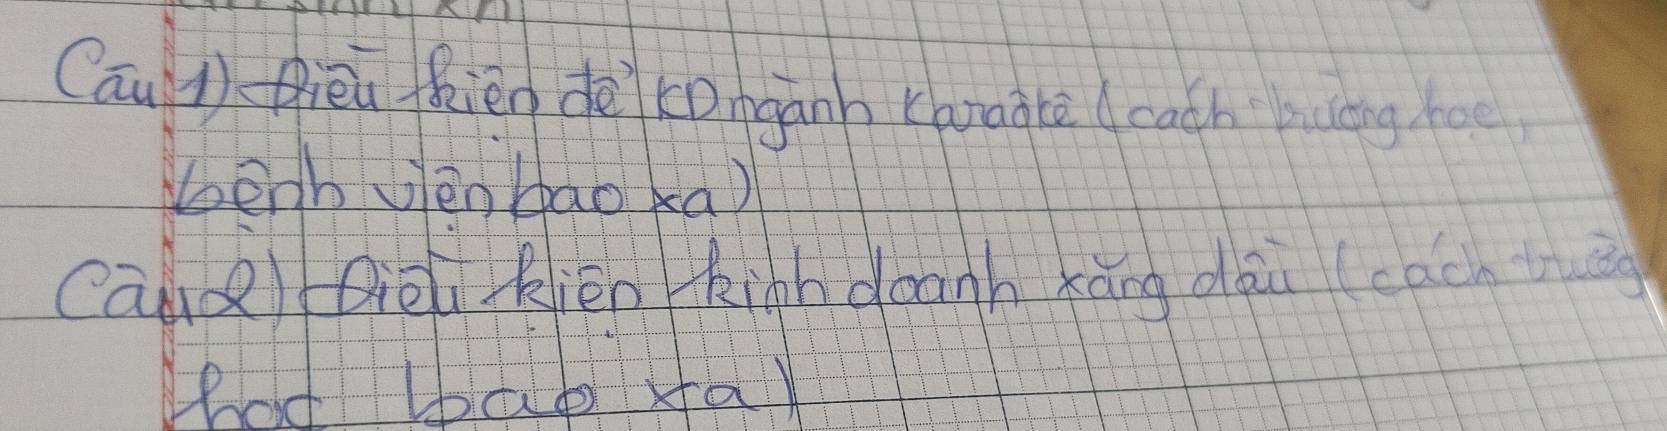 Câu 1) Điều kiện để KD ngành Karaoke (cách trường học,
bệnh viện bao xa)
Câu 2) Điều kiện kinh doanh xăng dầu (cách trường
học bao xa)